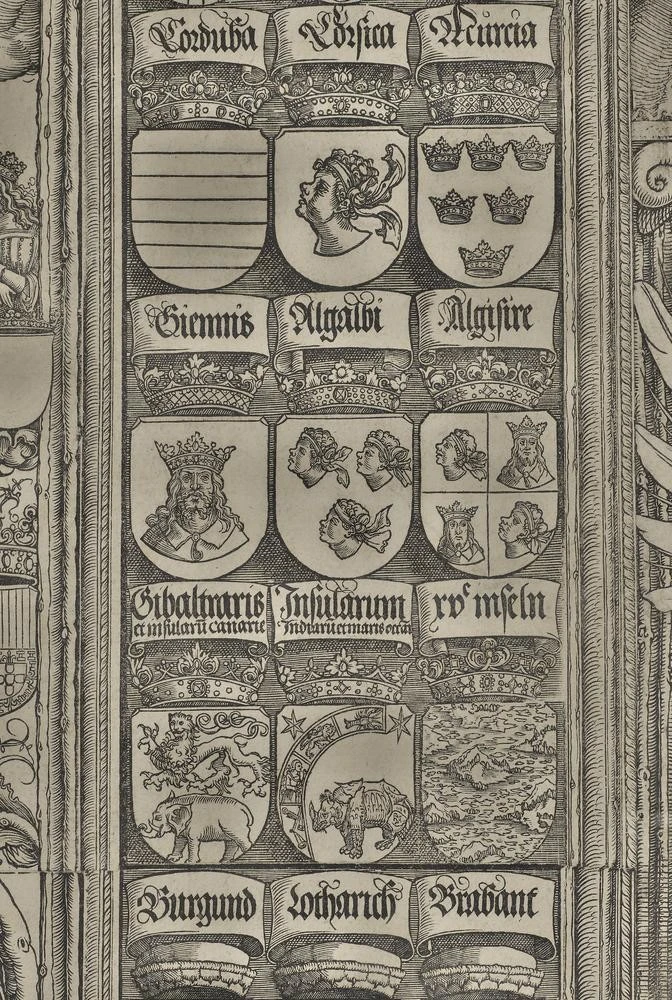 Corduba
Corsica
Murcia
Giennis
Algalbi
Algisire
Gibaltraris
et insularū canarie
Insularum
Indiarū et maris oceāi
xvᶜ inseln
Burgund
Lotharich
Brabant